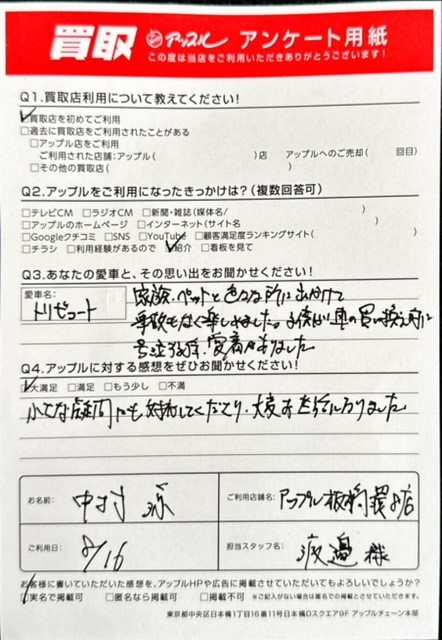 買取 アップル アンケート用紙
この度は当店をご利用いただきありがとうございます!
Q1.買取店利用について教えてください!
買取店を初めてご利用
□過去に買取店をご利用されたことがある
□アップル店をご利用
ご利用された店舗:アップル( )店 アップルへのご売却( 回目)
□その他の買取店( )
Q2.アップルをご利用になったきっかけは?(複数回答可)
□テレビCM □ラジオCM □新聞・雑誌(媒体名/ )
□アップルのホームページ □インターネット(サイト名 )
□Googleクチコミ □SNS □YouTube □顧客満足度ランキングサイト( )
□チラシ □利用経験があるので 紹介 □看板を見て
Q3.あなたの愛車と、その思い出をお聞かせください!
愛車名:
家族、ペットと色々な所に出かけて
事故もなく楽しめました。子供が車の買い換え時に
号泣する程、愛着がありました
Q4.アップルに対する感想をぜひお聞かせください!
大満足 □満足 □もう少し □不満
小さな疑問にも対応してくださり、大変お世話になりました
お名前: 中村 ご利用店舗名: アップル板橋環8店
ご利用日: 8/16 担当スタッフ名: 渡邉様
お客様に書いていただいた感想を、アップルHPや広告に掲載させていただいてもよろしいでしょうか?
実名で掲載可 □匿名なら掲載可 □掲載不可 ※ご記入がない場合は匿名での掲載とさせていただきます。
東京都中央区日本橋1丁目16番11号日本橋Dスクエア9F アップルチェーン本部